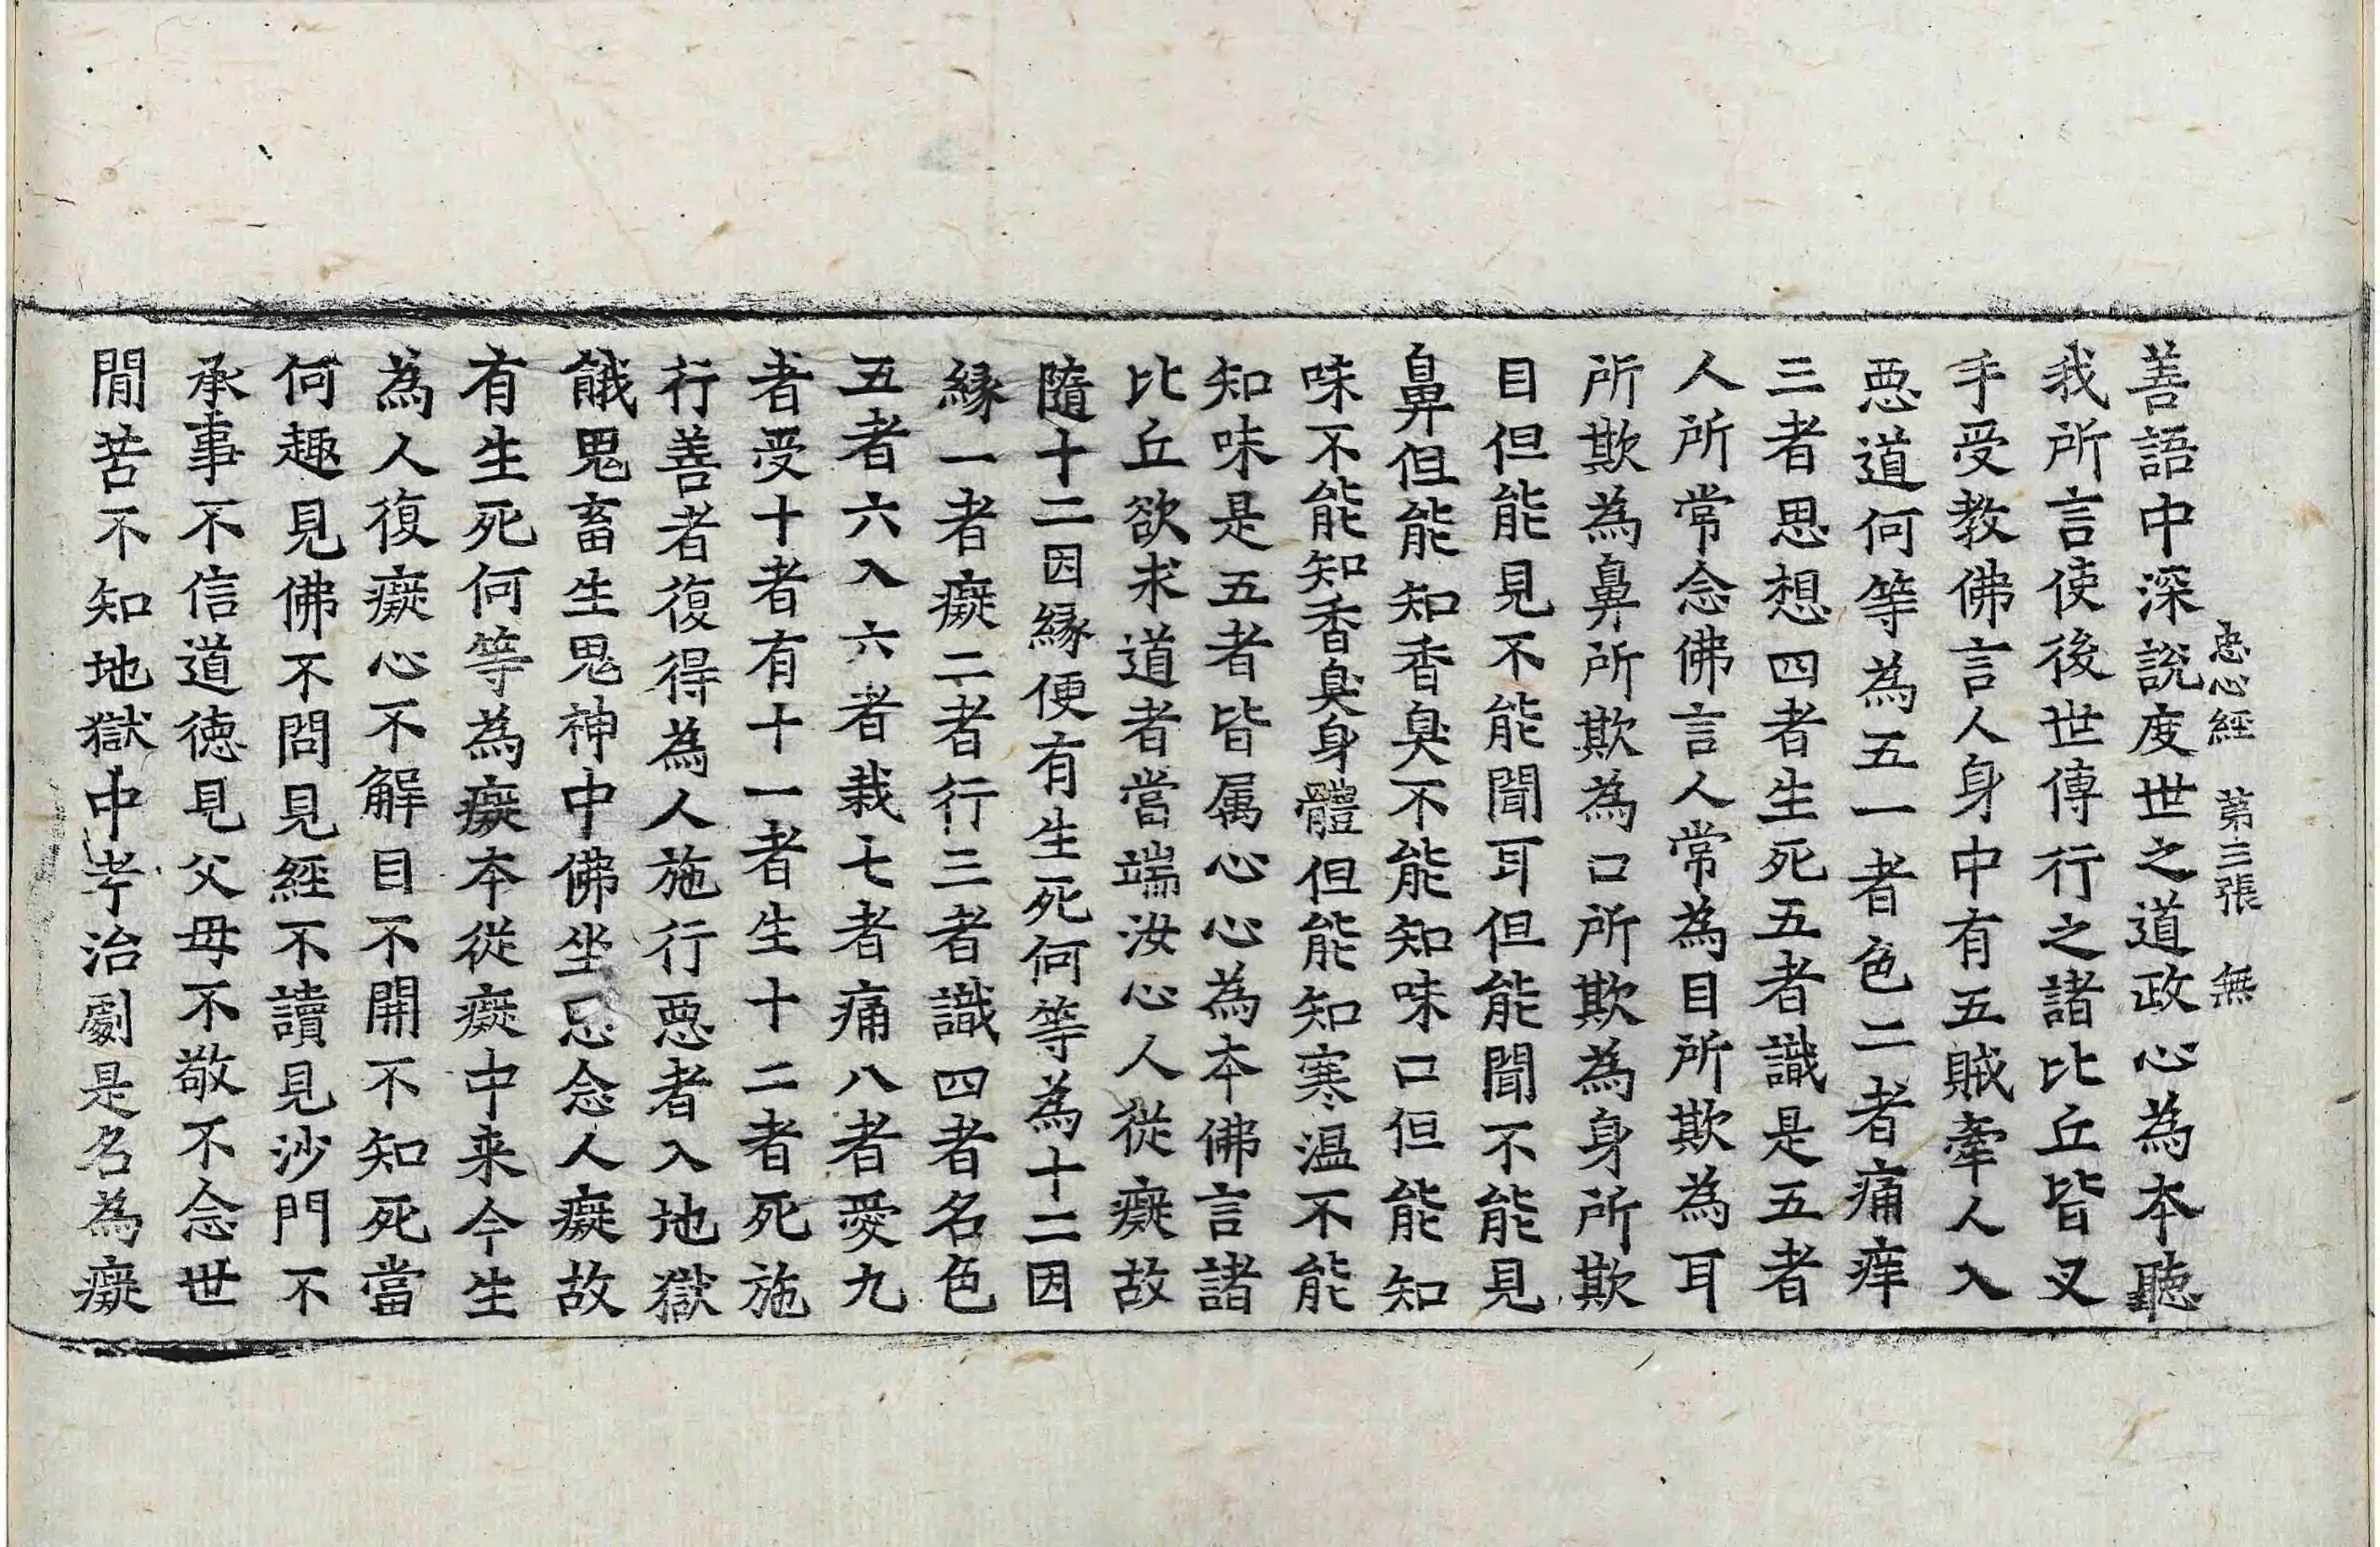 忠心經 第三張 無
善語中深說度世之道政心為本聽
我所言使後世傳行之諸比丘皆叉
手受教佛言人身中有五賊牽人入
惡道何等為五一者色二者痛痒
三者思想四者生死五者識是五者
人所常念佛言人常為目所欺為耳
所欺為鼻所欺為口所欺為身所欺
目但能見不能聞耳但能聞不能見
鼻但能知香臭不能知味口但能知
味不能知香臭身體但能知寒温不能
知味是五者皆属心心為本佛言諸
比丘欲求道者當端汝心人從癡故
隨十二因緣便有生死何等為十二因
緣一者癡二者行三者識四者名色
五者六入六者栽七者痛八者愛九
者受十者有十一者生十二者死施
行善者復得為人施行惡者入地獄
餓鬼畜生鬼神中佛坐忌念人癡故
有生死何等為癡本從癡中来今生
為人復癡心不解目不開不知死當
何趣見佛不問見經不讀見沙門不
承事不信道德見父母不敬不念世
閒苦不知地獄中考治劇是名為癡